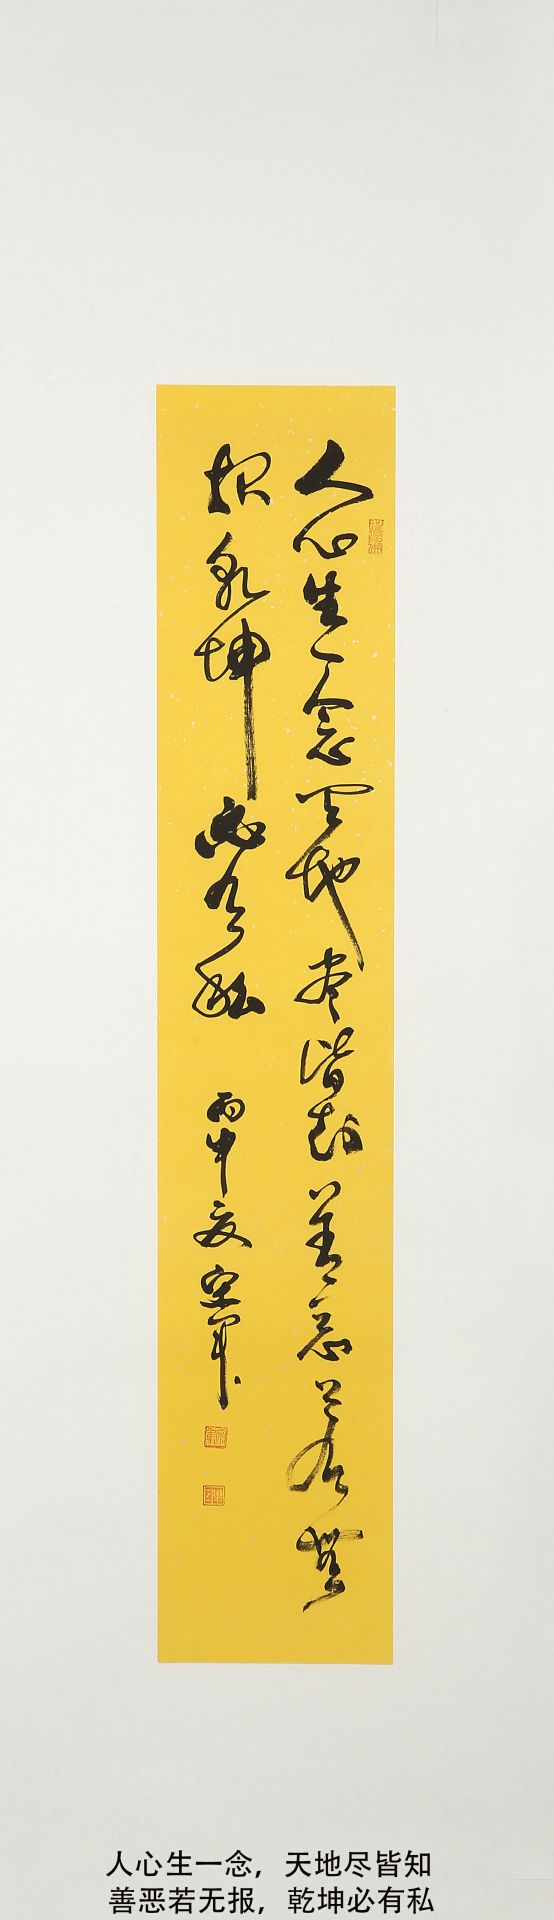 人心生一念天地尽皆知善恶若无
报乾坤必有私
丙申夏 宝军
人心生一念，天地尽皆知
善恶若无报，乾坤必有私